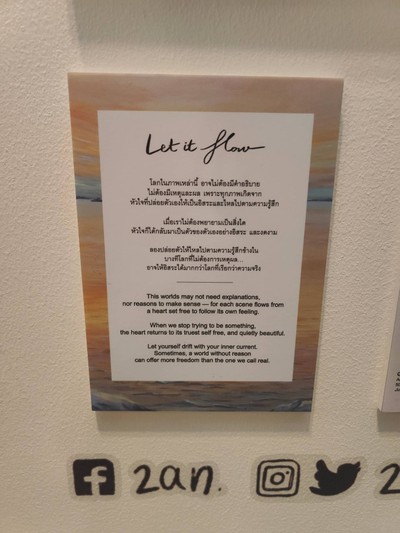 Let it flow
โลกในภาพเหล่านี้ อาจไม่ต้องมีคำอธิบาย
ไม่ต้องมีเหตุและผล เพราะทุกภาพเกิดจาก
หัวใจที่ปล่อยตัวเองให้เป็นอิสระและไหลไปตามความรู้สึก
เมื่อเราไม่ต้องพยายามเป็นสิ่งใด
หัวใจก็ได้กลับมาเป็นตัวของตัวเองอย่างอิสระ และงดงาม
ลองปล่อยตัวให้ไหลไปตามความรู้สึกข้างใน
บางทีโลกที่ไม่ต้องการเหตุผล...
อาจให้อิสระได้มากกว่าโลกที่เรียกว่าความจริง
This worlds may not need explanations,
nor reasons to make sense — for each scene flows from
a heart set free to follow its own feeling.
When we stop trying to be something,
the heart returns to its truest self free, and quietly beautiful.
Let yourself drift with your inner current.
Sometimes, a world without reason
can offer more freedom than the one we call real.
2an.